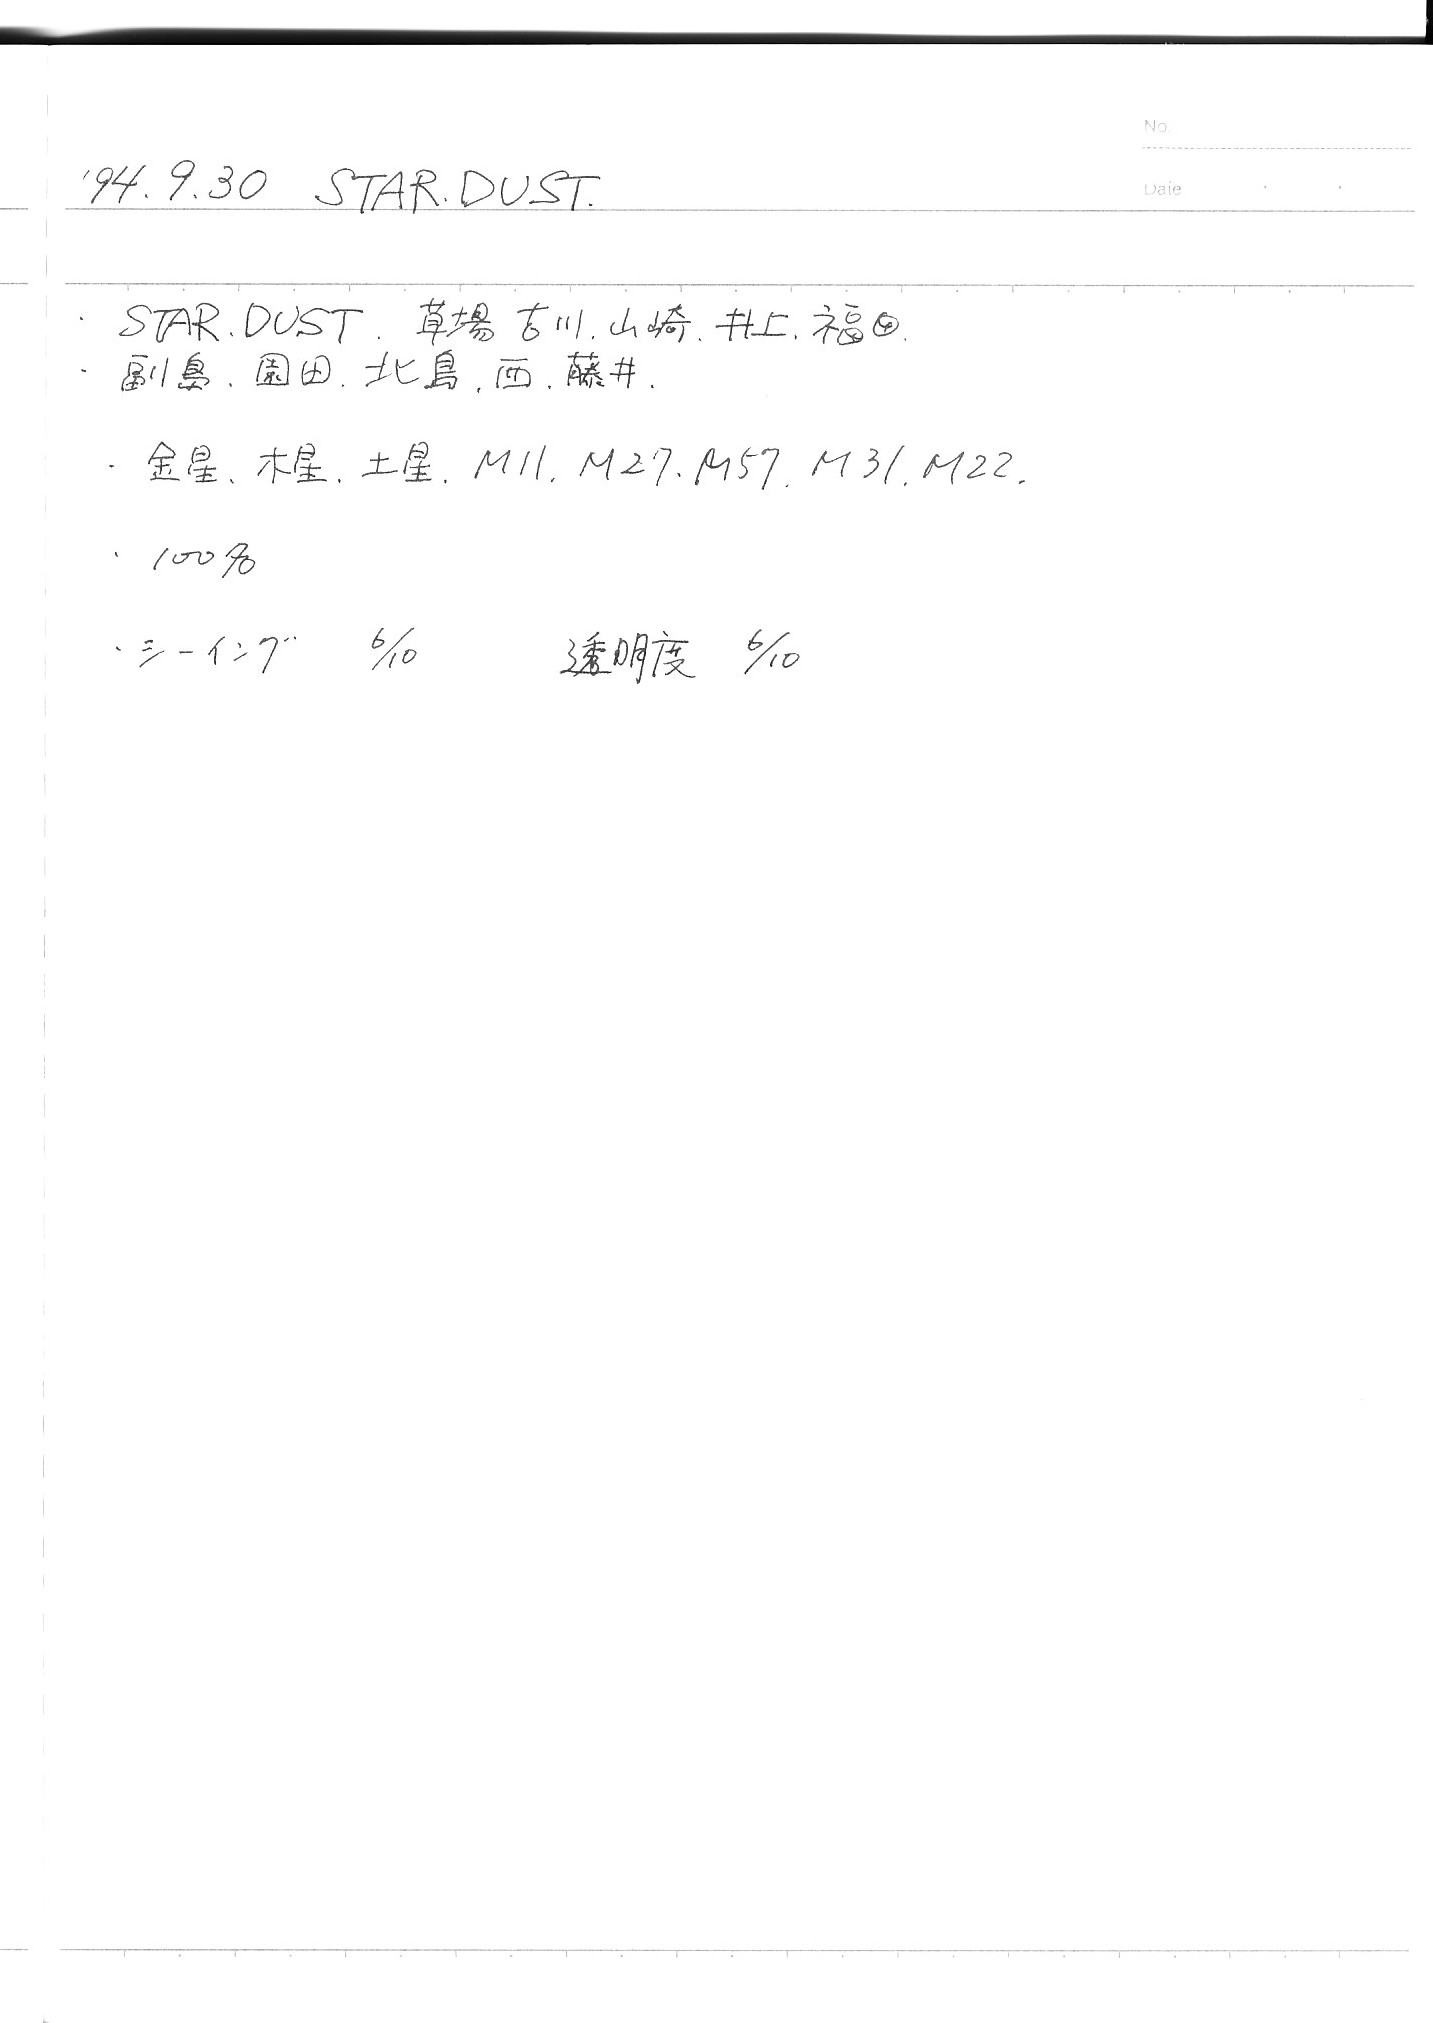 No.
'94.9.30 STAR.DUST.
Date
・STAR.DUST. 草場 吉川.山崎.井上.福田.
・副島.園田.北島.西.藤井.
・金星、木星.土星.M11.M27.M57.M31.M22.
・100名
・シーイング 6/10 透明度 6/10